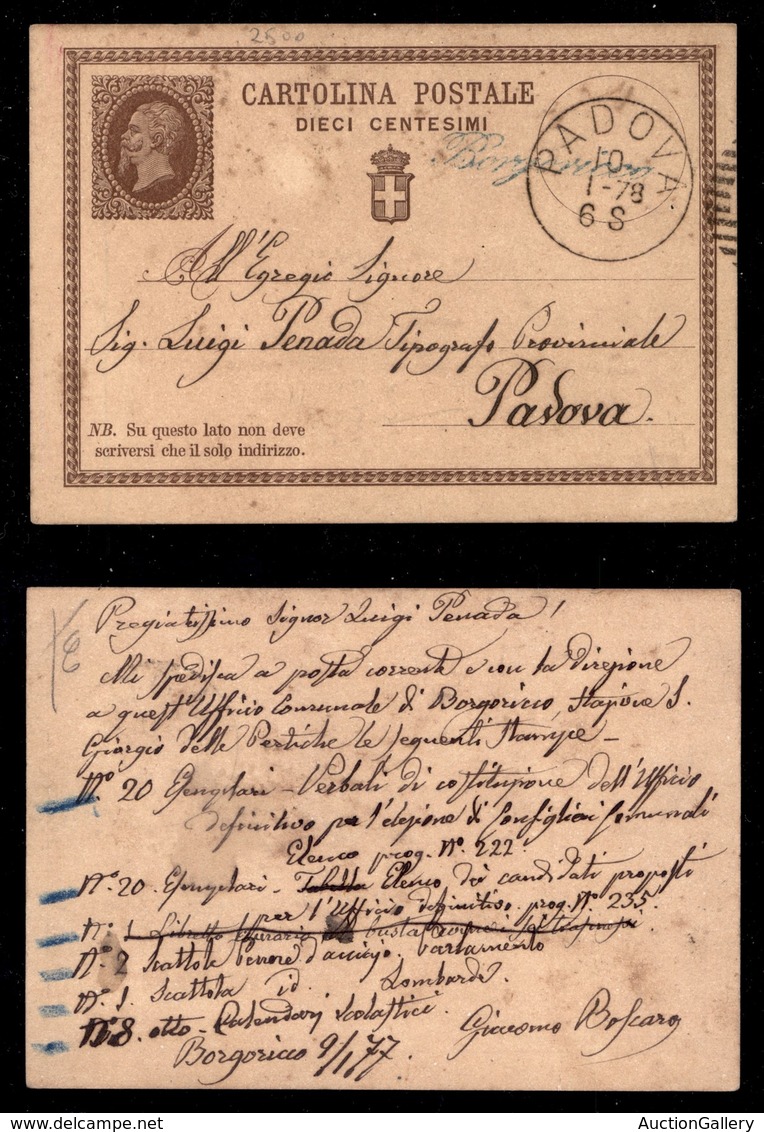 2500
CARTOLINA POSTALE
DIECI CENTESIMI
PADOVA
10
1-78
6 S
All'Egregio Signore
Sig. Luigi Penada Tipografo Provinciale
Padova.
NB. Su questo lato non deve
scriversi che il solo indirizzo.
Pregiatissimo Signor Luigi Penada!
Mi spedisca a posta corrente e con la Direzione
a quest'Ufficio Comunale di Borgoricco, Stazione S.
Giorgio delle Pertiche le seguenti Stampe -
N.º 20 Esemplari - Verbali di costituzione dell'Ufficio
definitivo per l'elezione di Consiglieri Comunali
Elenco prog. Nº. 222.
Nº. 20. Esemplari - Tabella Elenco dei candidati proposti
per l'Ufficio definitivo. prog. Nº 235.
Nº 1 Libretto
Nº 2 Scattole Penne d'acciajo.
Nº. 1. Scattola id. Lombardi.
Nº 8. otto - Calendarj scolastici.
Borgoricco 9/1 77
Giacomo Boscaro
AuctionGallery